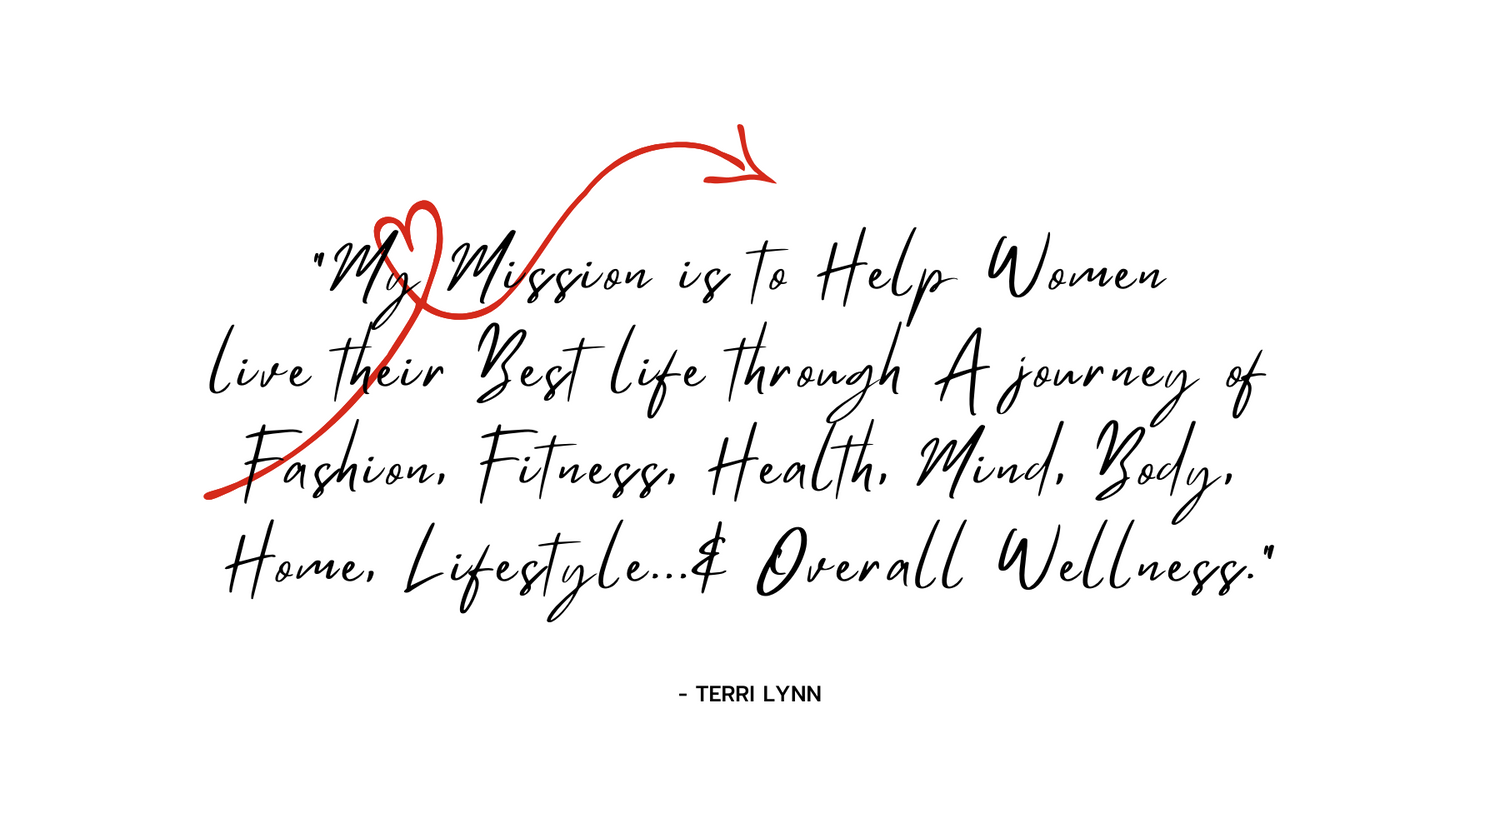 "My Mission is to Help Women
Live their Best Life through A journey of
Fashion, Fitness, Health, Mind, Body,
Home, Lifestyle...& Overall Wellness."
- TERRI LYNN